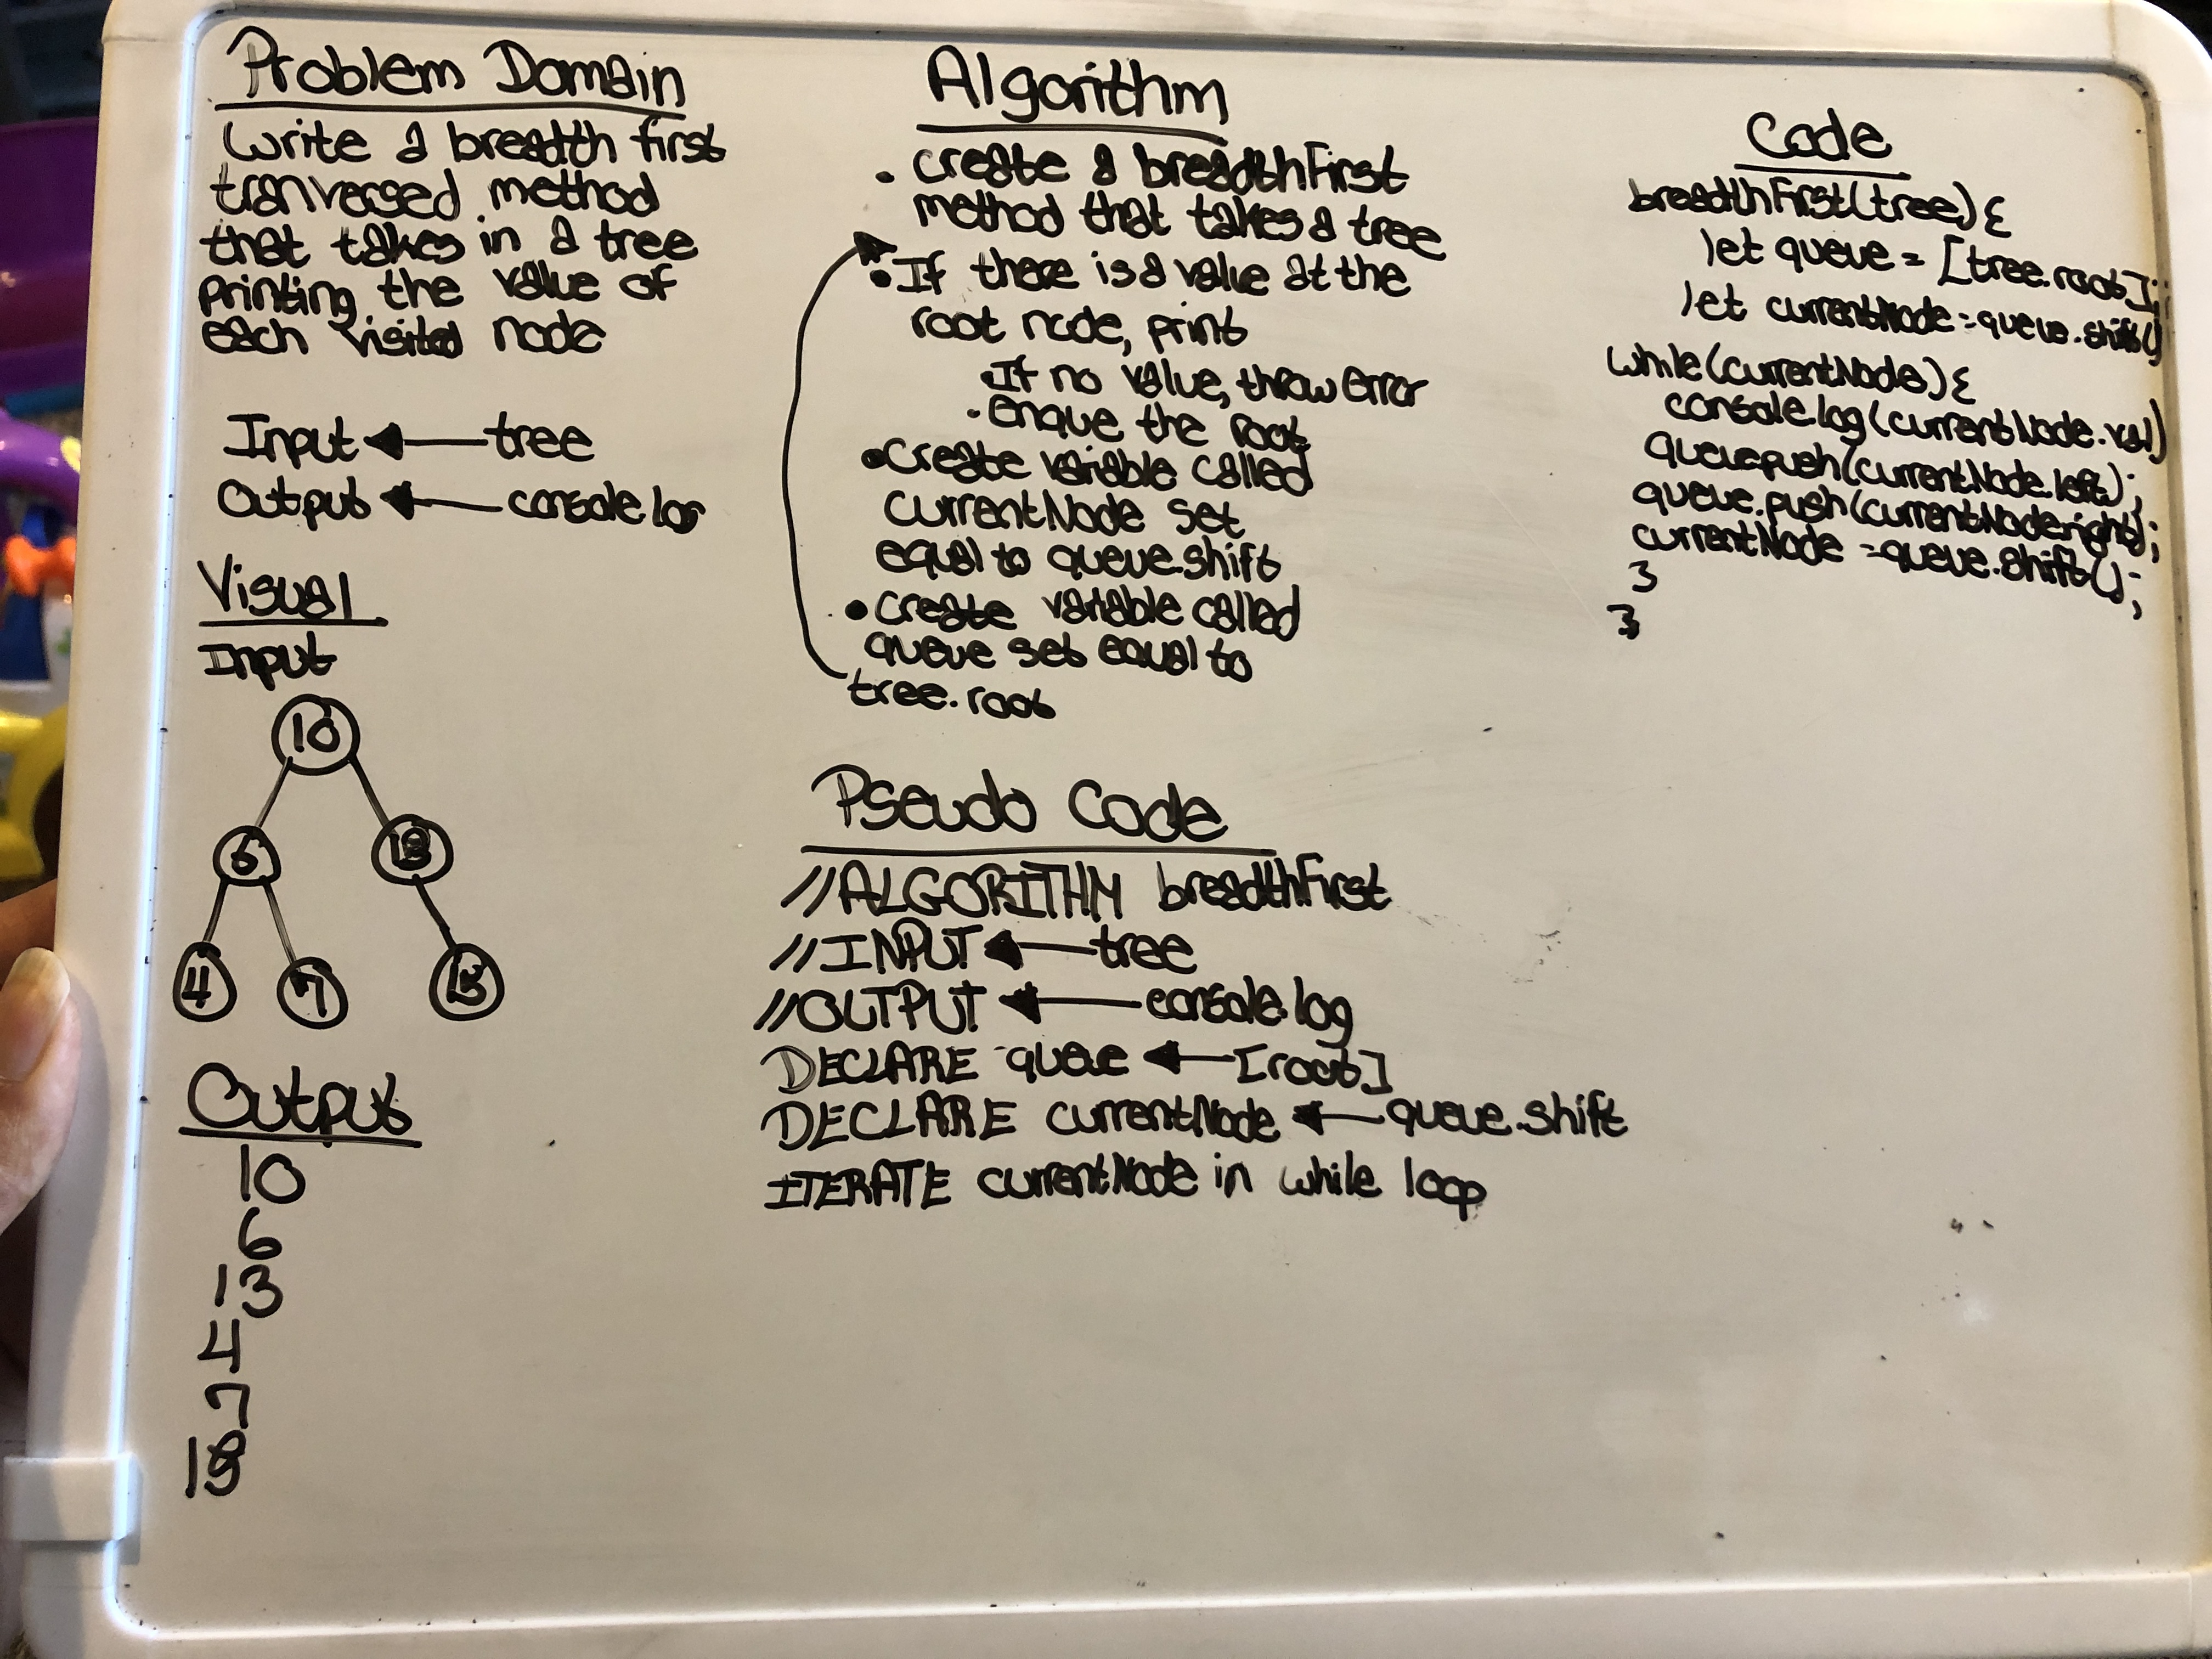 Problem Domain
Write a breadth first
tranversed method
that takes in a tree
printing the value of
each visited node
Input ← tree
Output ← console.log
Visual
Input
10
6
13
4
7
15
Output
10
6
13
4
7
Algorithm
• create a breadthFirst
method that takes a tree
• If there is a value at the
root node, print
• If no value, throw error
• enque the root
• Create variable called
currentNode set
equal to queue.shift
• create variable called
queue set equal to
tree.root
Pseudo Code
//ALGORITHM breadthFirst
//INPUT ← tree
//OUTPUT ← console.log
DECLARE queue ← [root]
DECLARE currentNode ← queue.shift
ITERATE currentNode in while loop
Code
breadthFirst(tree){
let queue = [tree.root];
let currentNode = queue.shift()
while(currentNode){
console.log(currentNode.val)
queue.push(currentNode.left);
queue.push(currentNode.right);
currentNode = queue.shift();
}
}